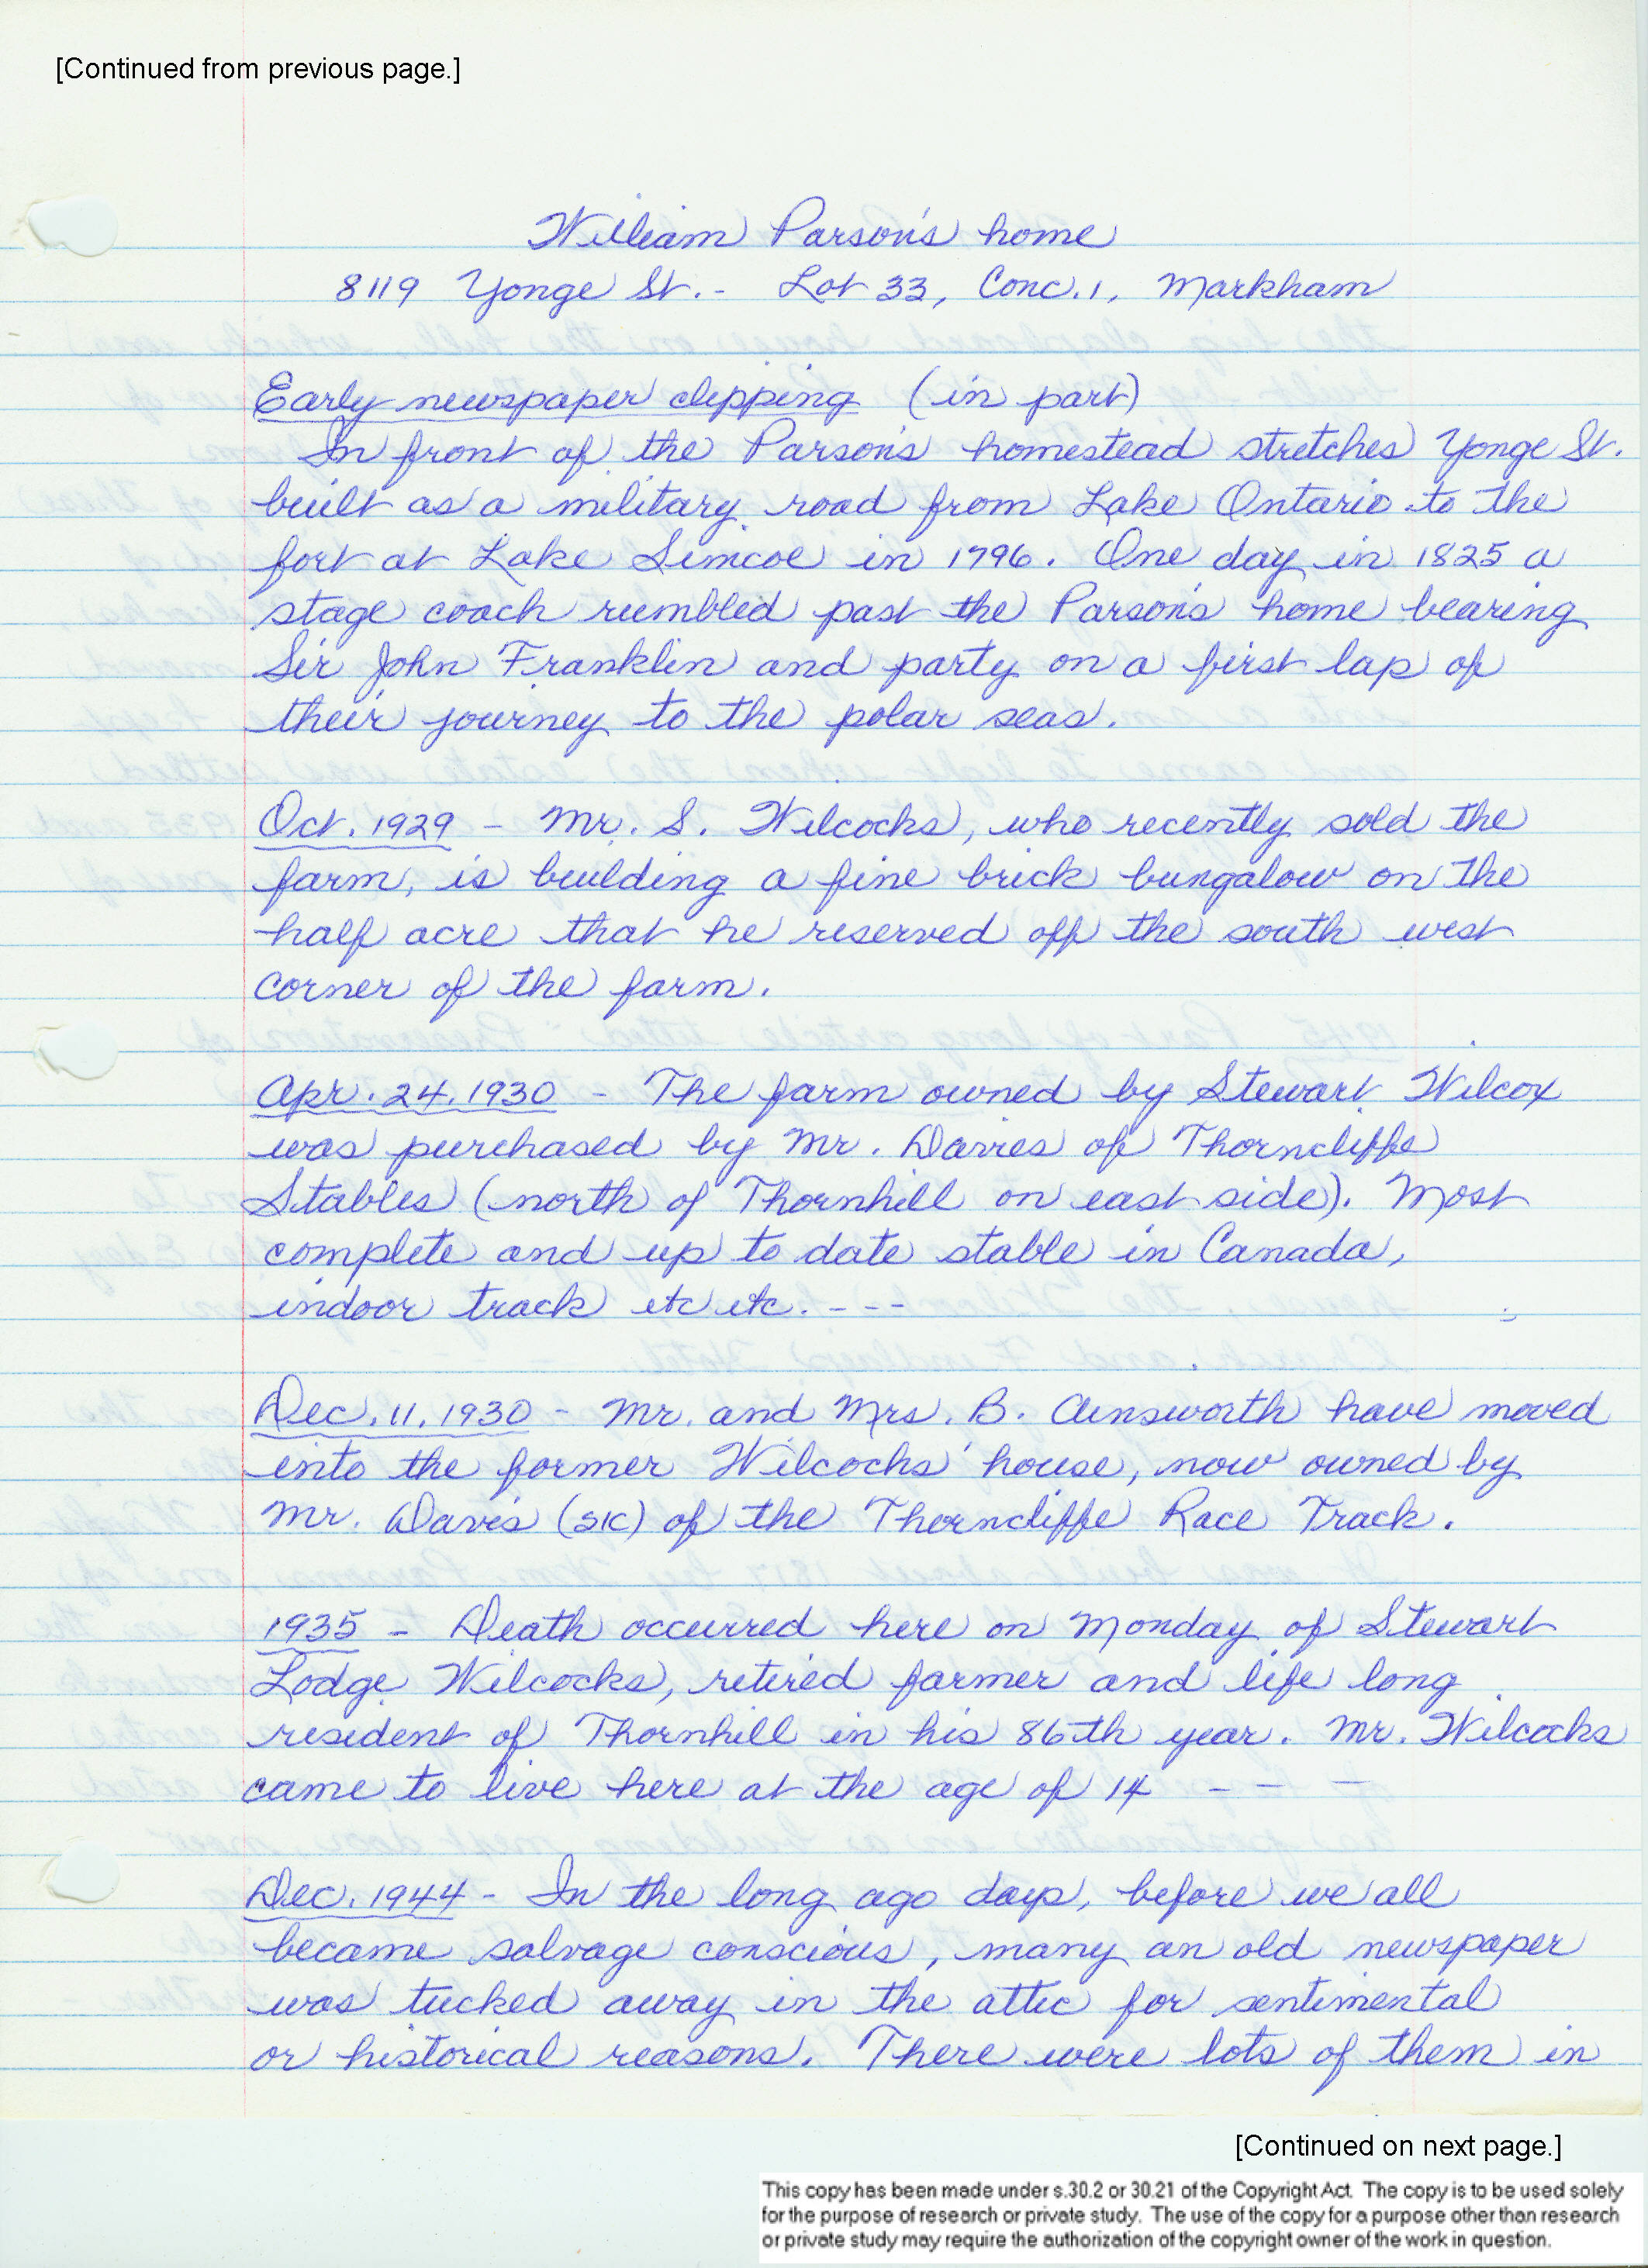 [Continued from previous page.]
William Parson's home
8119 Yonge St. - Lot 33, Conc. 1, Markham
Early newspaper clipping (in part)
In front of the Parson's homestead stretches Yonge St.
built as a military road from Lake Ontario to the
fort at Lake Simcoe in 1796. One day in 1825 a
stage coach rumbled past the Parson's home bearing
Sir John Franklin and party on a first lap of
their journey to the polar seas.
Oct. 1929 - Mr. S. Wilcocks, who recently sold the
farm, is building a fine brick bungalow on the
half acre that he reserved off the south west
corner of the farm.
Apr. 24. 1930 - The farm owned by Stewart Wilcox
was purchased by Mr. Davies of Thorncliffe
Stables (north of Thornhill on east side). Most
complete and up to date stable in Canada,
indoor track etc etc. ---
Dec. 11. 1930 - Mr. and Mrs. B. Ainsworth have moved
into the former Wilcocks' house, now owned by
Mr. Davis (sic) of the Thorncliffe Race Track.
1935 - Death occurred here on Monday of Stewart
Lodge Wilcocks, retired farmer and life long
resident of Thornhill in his 86th year. Mr. Wilcocks
came to live here at the age of 14 - - -
Dec. 1944 - In the long ago days, before we all
became salvage conscious, many an old newspaper
was tucked away in the attic for sentimental
or historical reasons. There were lots of them in
[Continued on next page.]
This copy has been made under s.30.2 or 30.21 of the Copyright Act. The copy is to be used solely
for the purpose of research or private study. The use of the copy for a purpose other than research
or private study may require the authorization of the copyright owner of the work in question.